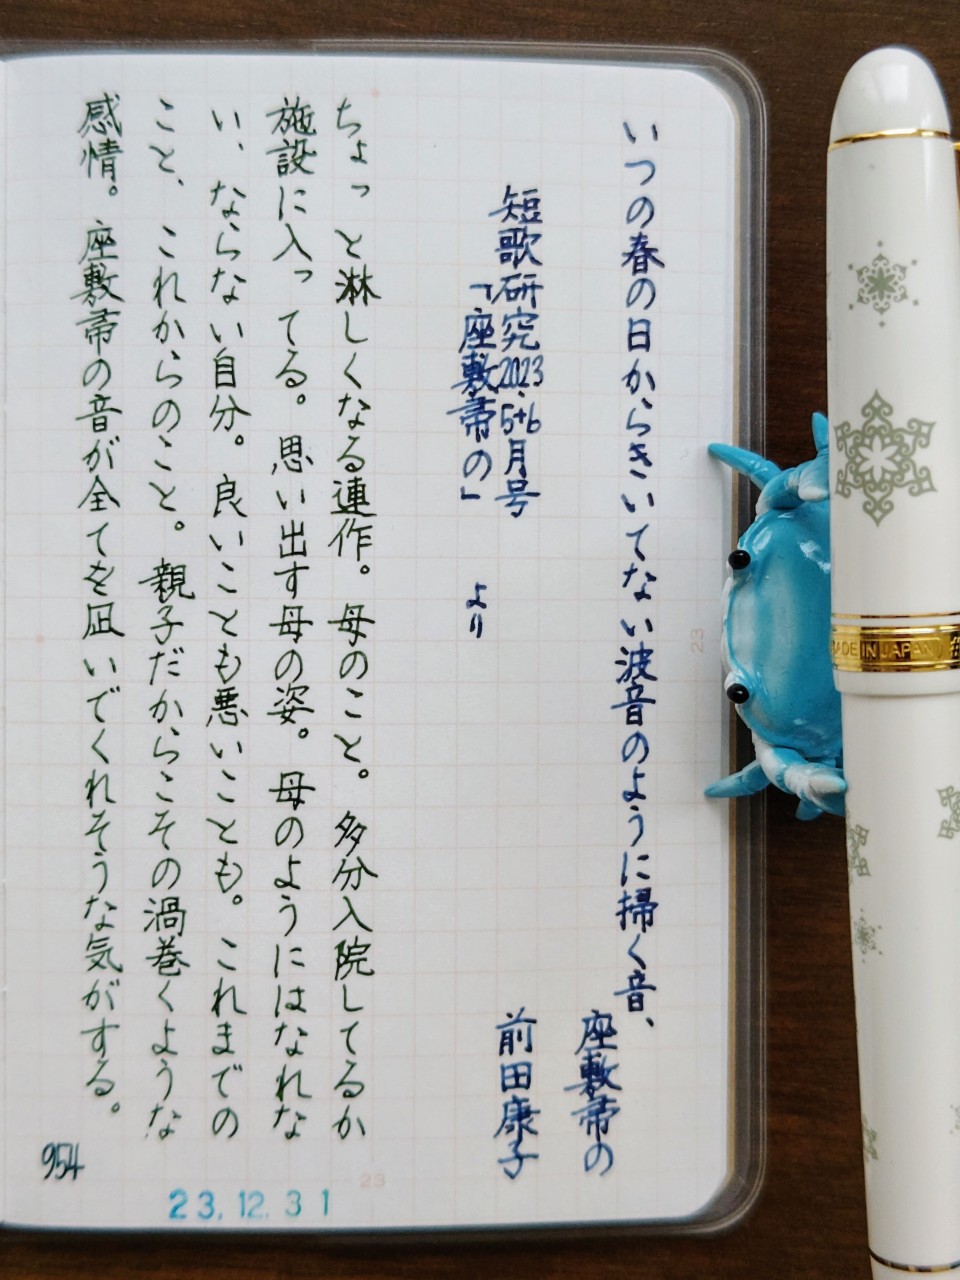 いつの春の日からきいてない波音のように掃く音、
座敷帚の
前田康子
短歌研究2023.5+6月号
「座敷帚の」
より
ちょっと淋しくなる連作。母のこと。多分入院してるか
施設に入ってる。思い出す母の姿。母のようにはなれな
い、ならない自分。良いことも悪いことも。これまでの
こと、これからのこと。親子だからこその渦巻くような
感情。座敷帚の音が全てを凪いでくれそうな気がする。
954
23.12.31
23
23
MADE IN JAPAN